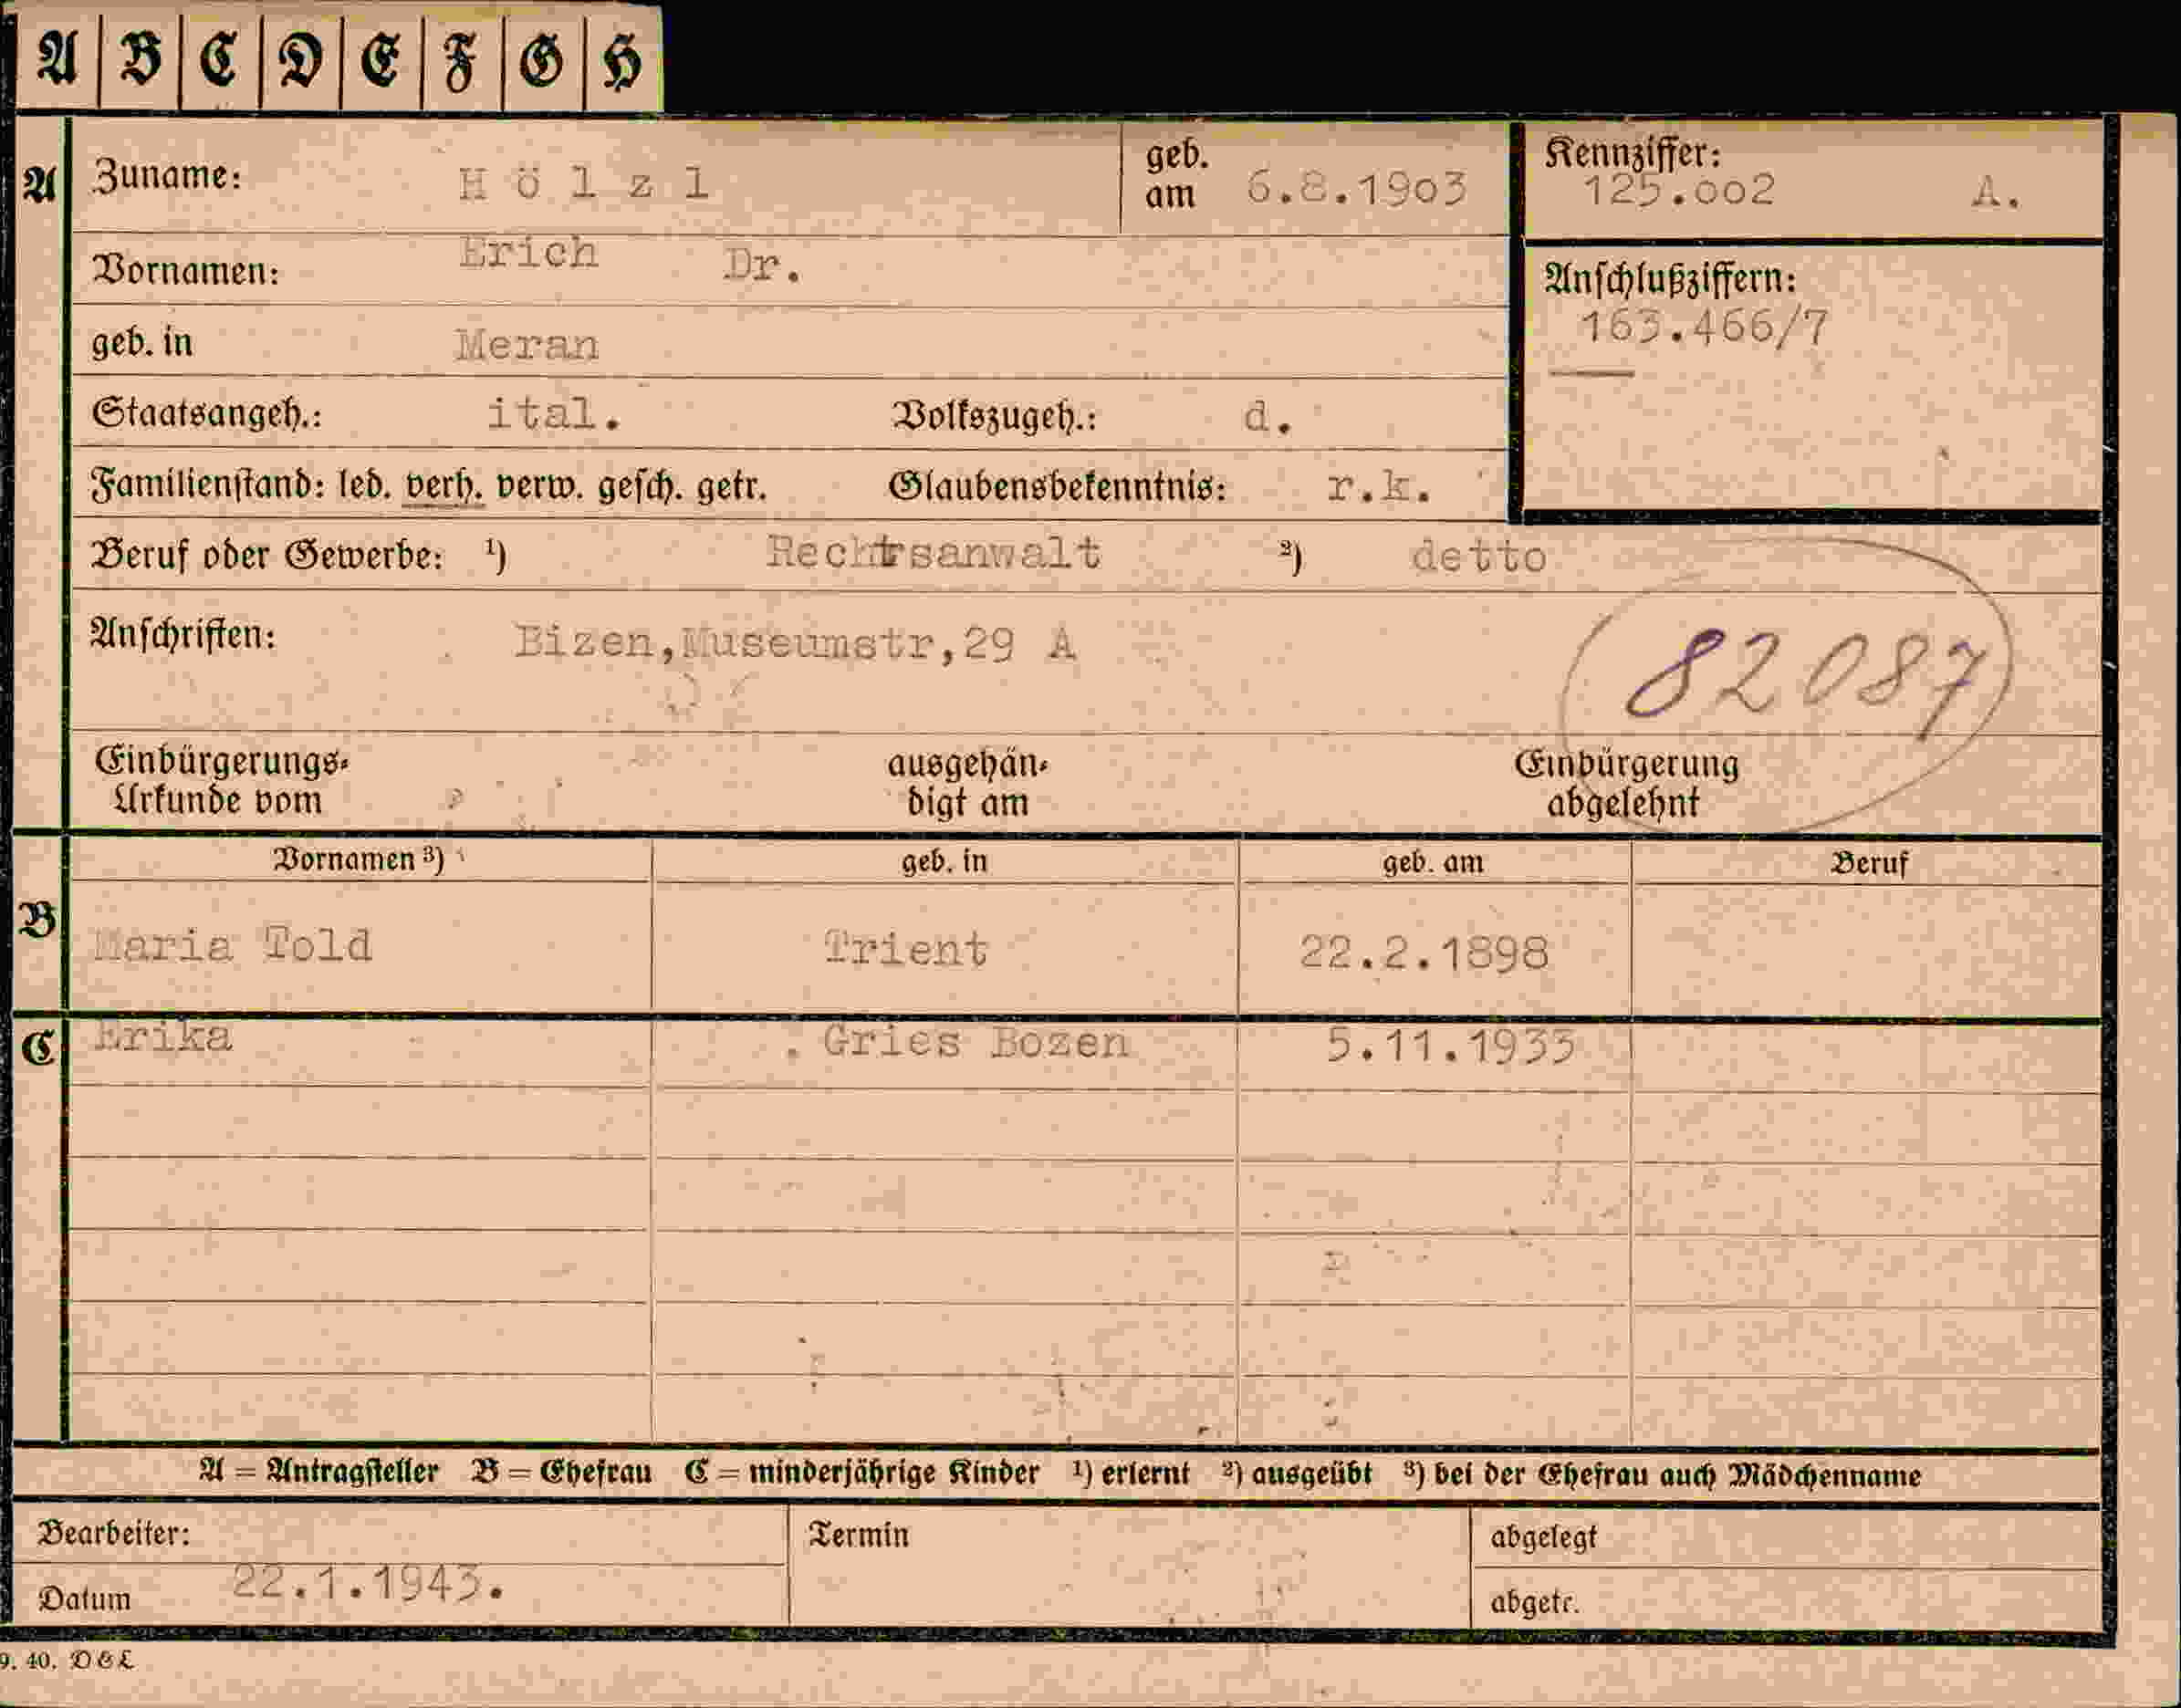 A B C D E F G H
A Zuname: Hölzl geb. am 6.8.1903 Kennziffer: 125.002 A.
Vornamen: Erich Dr.
Anschlußziffern: 163.466/7
geb. in Meran
Staatsangeh.: ital. Volkszugeh.: d.
Familienstand: led. verh. verw. gesch. getr. Glaubensbekenntnis: r.k.
Beruf oder Gewerbe: ¹) Rechtsanwalt ²) detto
Anschriften: Bizen,Museumstr,29 A
82087
Einbürgerungs-Urkunde vom ausgehändigt am Einbürgerung abgelehnt
Vornamen ³) geb. in geb. am Beruf
B Maria Told Trient 22.2.1898
C Erika Gries Bozen 5.11.1933
A = Antragsteller B = Ehefrau C = minderjährige Kinder ¹) erlernt ²) ausgeübt ³) bei der Ehefrau auch Mädchenname
Bearbeiter: Termin abgelegt
Datum 22.1.1943. abgetr.
9. 40. D&L